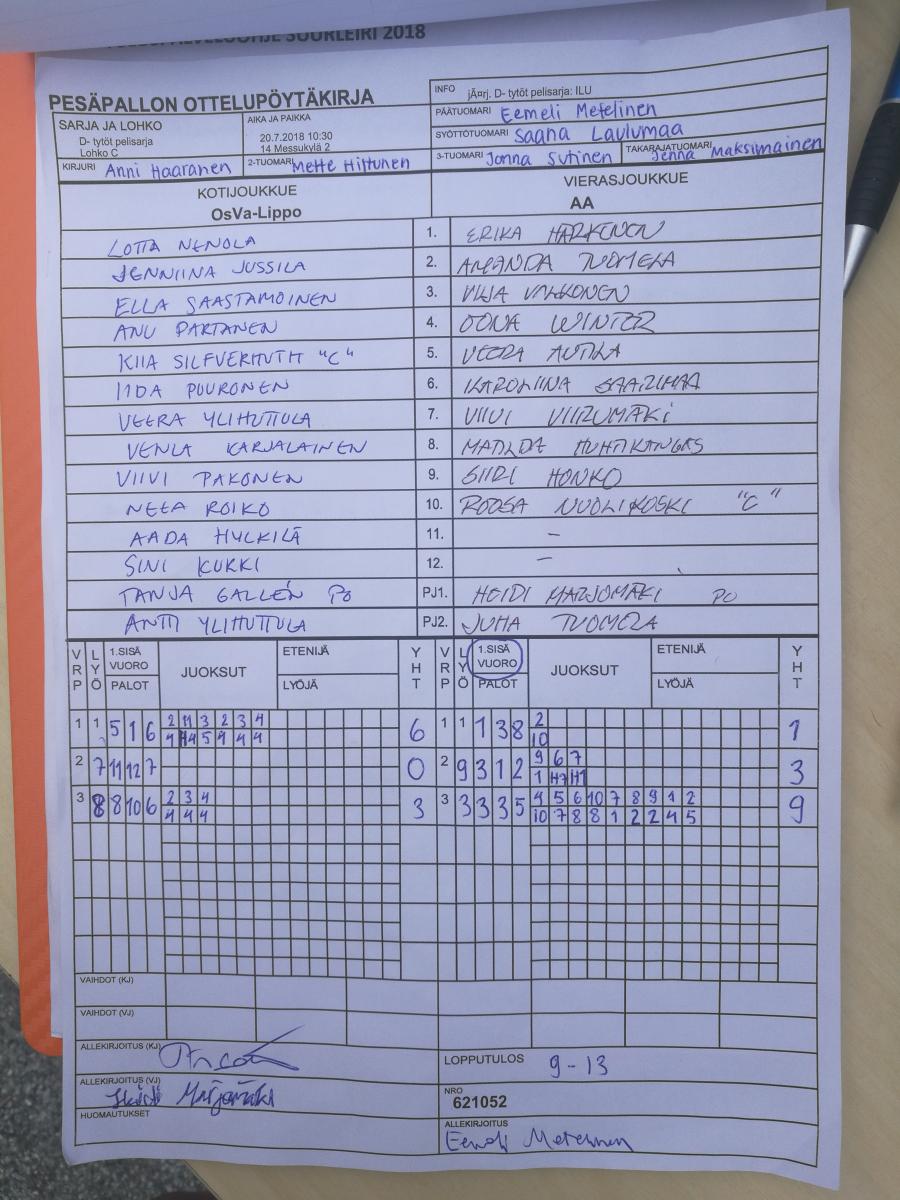 SUURLEIRI 2018
PESÄPALLON OTTELUPÖYTÄKIRJA
INFO jÃ¤rj. D- tytöt pelisarja: ILU
SARJA JA LOHKO
D- tytöt pelisarja
Lohko C
AIKA JA PAIKKA
20.7.2018 10:30
14 Messukylä 2
PÄÄTUOMARI Eemeli Metelinen
SYÖTTÖTUOMARI Saana Laulumaa
KIRJURI Anni Haaranen 2-TUOMARI Mette Hiltunen 3-TUOMARI Jonna Sutinen TAKARAJATUOMARI Jenna Maksimainen
KOTIJOUKKUE VIERASJOUKKUE
OsVa-Lippo AA
LOTTA NENOLA 1. ERIKA HÄRKÖNEN
JENNIINA JUSSILA 2. AMANDA TUOMELA
ELLA SAASTAMOINEN 3. VILJA VALKONEN
ANU PARTANEN 4. OONA WINTER
KIIA SILFVERHUTH "C" 5. VEERA AUTILA
IIDA PUURONEN 6. KAROLIINA SAARIMAA
VEERA YLIHUTTULA 7. VIIVI VIIRUMÄKI
VENLA KARJALAINEN 8. MATILDA HUHTIKANGAS
VIIVI PAKONEN 9. SIIRI HONKO
NEEA ROIKO 10. ROOSA NUOLIKOSKI "C"
AADA HYLKILÄ 11. -
SINI KUKKI 12. -
TANJA GALLÉN PO PJ1. HEIDI MARJOMÄKI PO
ANTTI YLIHUTTULA PJ2. JUHA TUOMELA
VRP LYÖ 1.SISÄ VUORO PALOT JUOKSUT ETENIJÄ LYÖJÄ YHT VRP LYÖ 1.SISÄ VUORO PALOT JUOKSUT ETENIJÄ LYÖJÄ YHT
1 1 5 1 6 2 11 3 2 3 4 6 1 1 1 3 8 2 1
4 4 5 4 4 4 10
2 7 11 12 7 0 2 9 3 1 2 9 6 7 3
1 H7 H1
3 8 8 10 6 2 3 4 3 3 3 3 3 5 4 5 6 10 7 8 9 1 2 9
4 4 4 10 7 8 8 1 2 2 4 5
VAIHDOT (KJ)
VAIHDOT (VJ)
ALLEKIRJOITUS (KJ)
LOPPUTULOS 9-13
ALLEKIRJOITUS (VJ) Heidi Marjomäki
NRO
621052
HUOMAUTUKSET
ALLEKIRJOITUS
Eemeli Metelinen